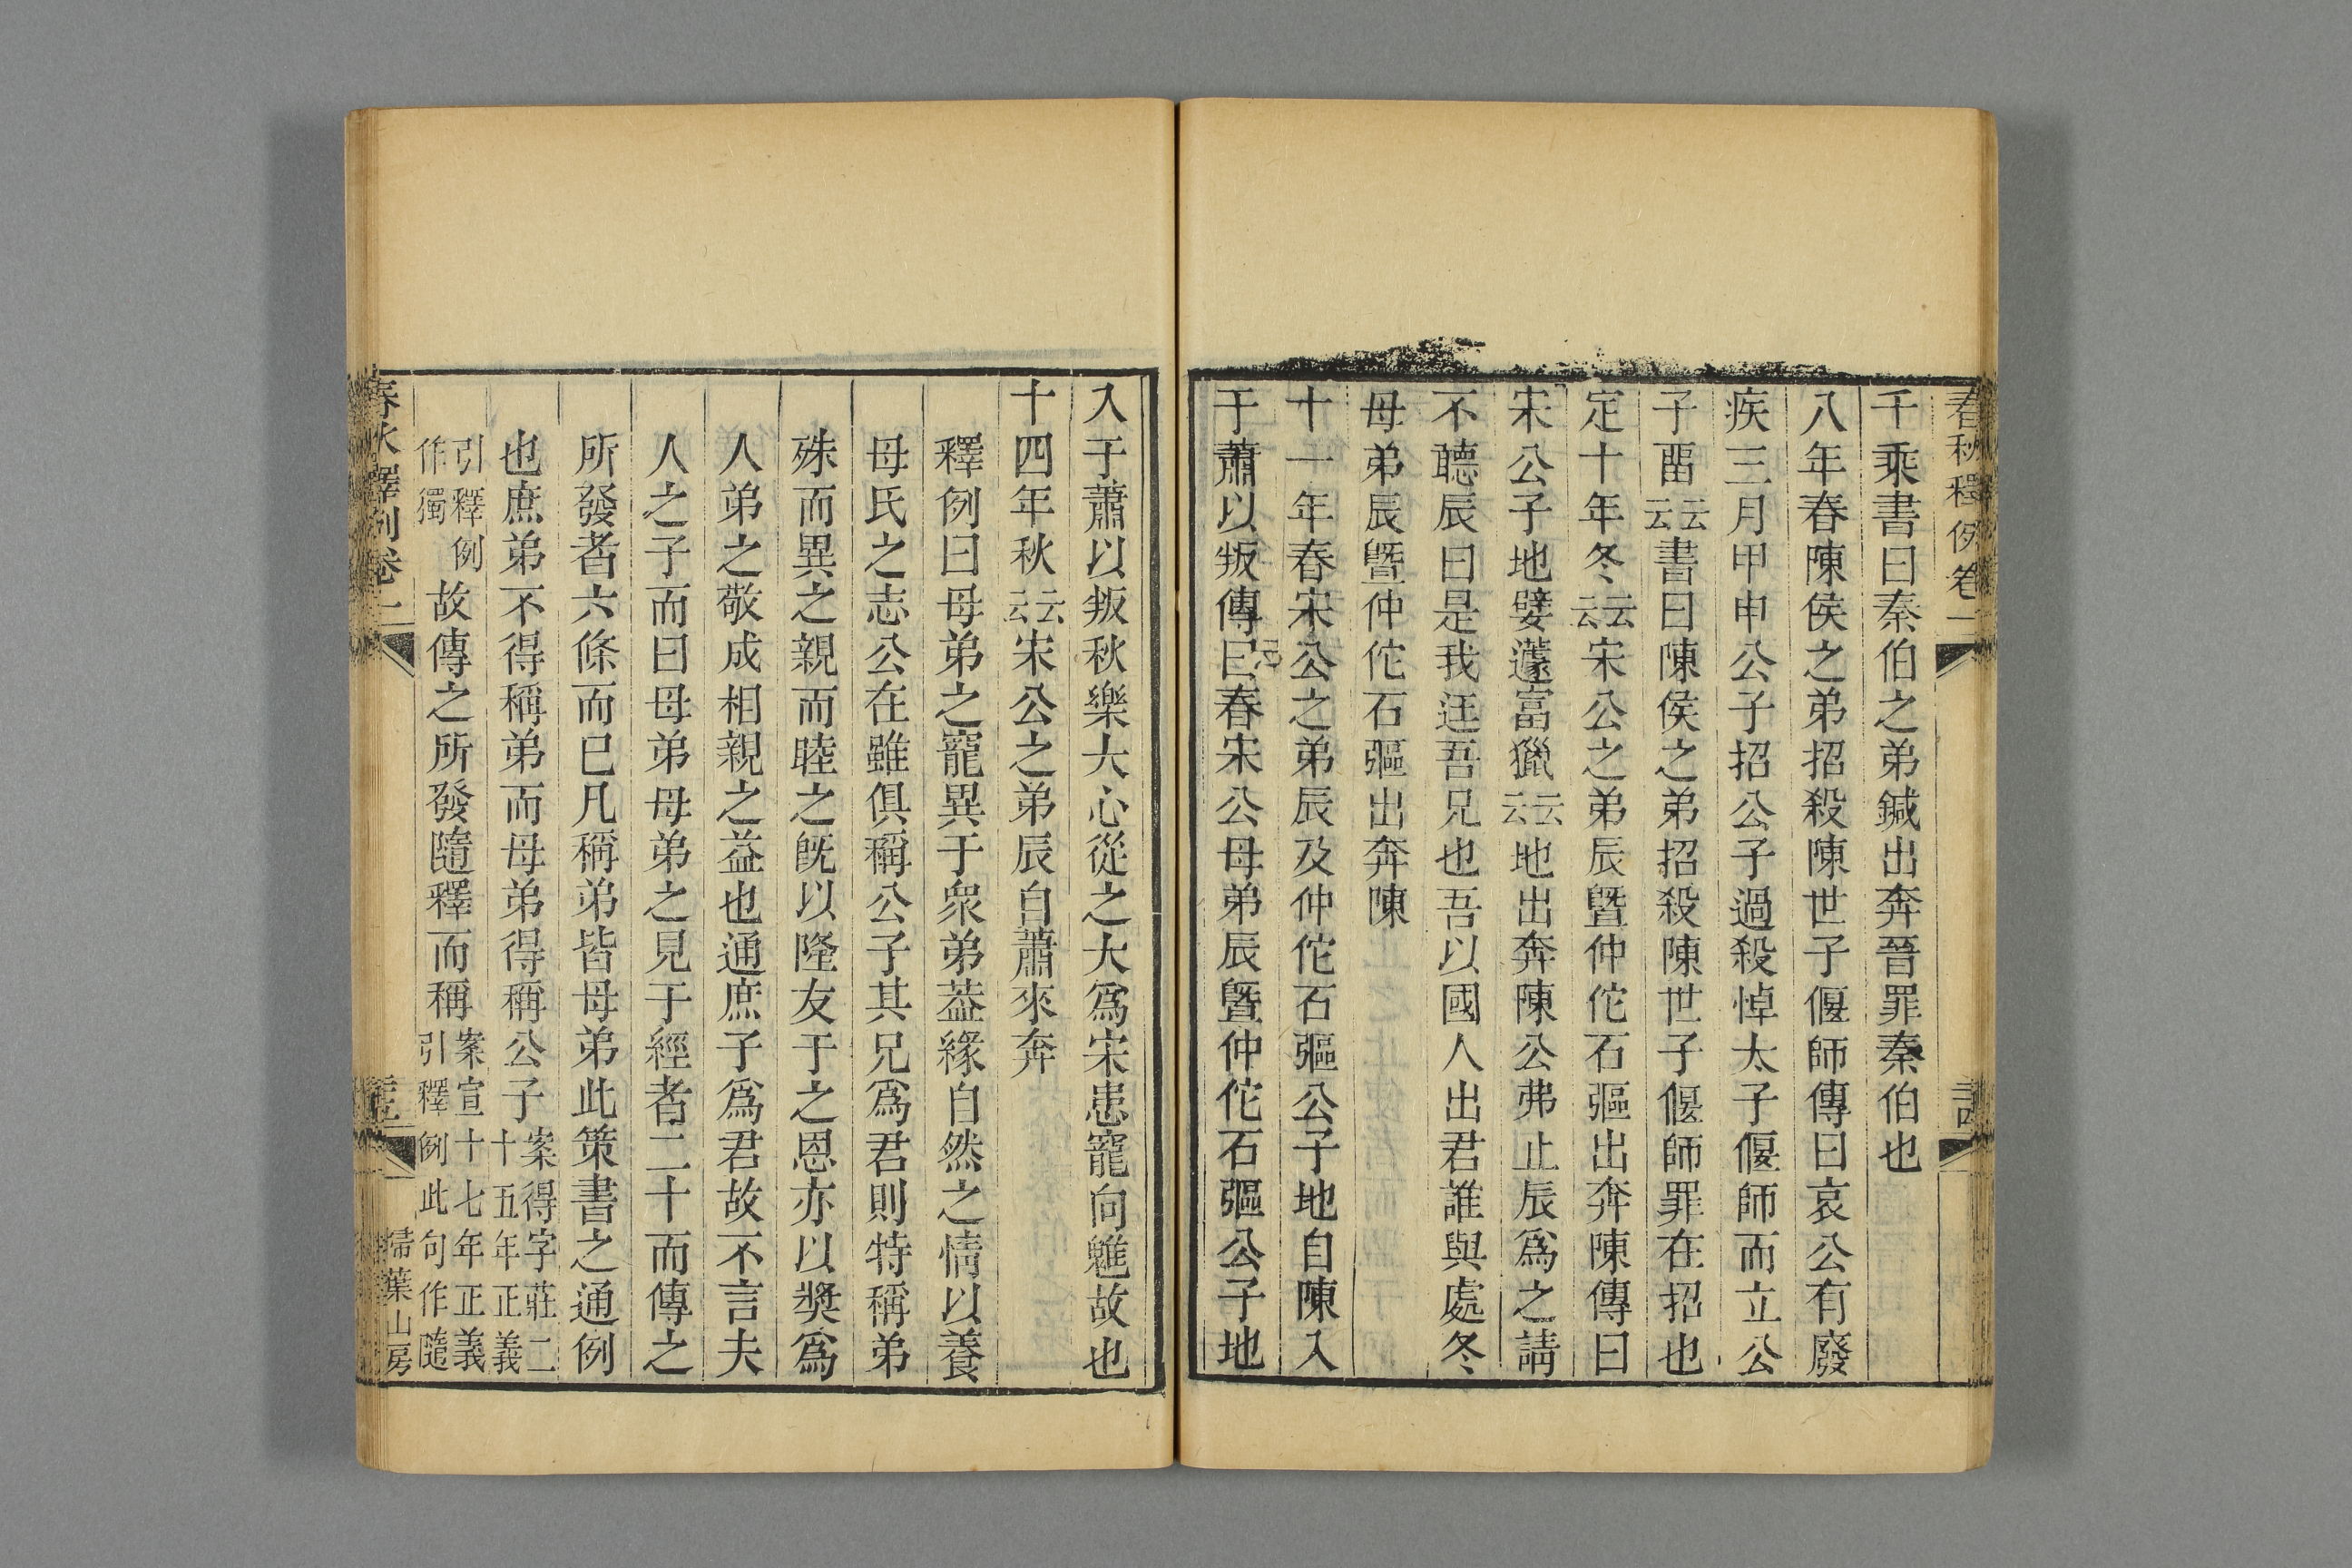 春秋釋例卷二
千乘書曰秦伯之弟鍼出奔晉罪秦伯也
八年春陳侯之弟招殺陳世子偃師傳曰哀公有廢
疾三月甲申公子招公子過殺悼太子偃師而立公
子畱云云書曰陳侯之弟招殺陳世子偃師罪在招也
定十年冬云云宋公之弟辰曁仲佗石彄出奔陳傳曰
宋公子地嬖蘧富獵云云地出奔陳公弗止辰爲之請
不聽辰曰是我迋吾兄也吾以國人出君誰與處冬
母弟辰曁仲佗石彄出奔陳
十一年春宋公之弟辰及仲佗石彄公子地自陳入
于蕭以叛傳曰春宋公母弟辰曁仲佗石彄公子地
入于蕭以叛秋樂大心從之大爲宋患寵向魋故也
十四年秋云云宋公之弟辰自蕭來奔
釋例曰母弟之寵異于衆弟葢緣自然之情以養
母氏之志公在雖俱稱公子其兄爲君則特稱弟
殊而異之親而睦之旣以隆友于之恩亦以奬爲
人弟之敬成相親之益也通庶子爲君故不言夫
人之子而曰母弟母弟之見于經者二十而傳之
所發者六條而已凡稱弟皆母弟此策書之通例
也庶弟不得稱弟而母弟得稱公子案得字莊二
十五年正義
引釋例
作獨故傳之所發隨釋而稱案宣十七年正義
引釋例此句作隨
春秋釋例卷二
掃葉山房